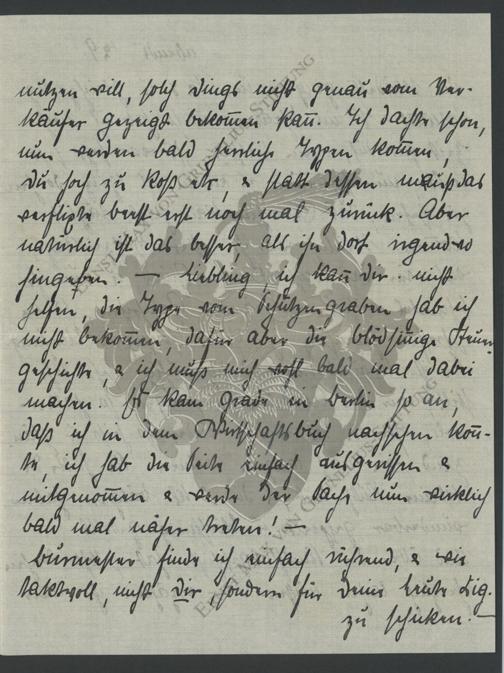 nützen will, solch Dings nicht genau vom Ver-
käufer gezeigt bekommen kann. Ich dachte schon,
nun werden bald herrliche Typen kommen,
Du hoch zu Roß etc, & statt dessen muß das
verflixte Biest erst noch mal zurück. Aber
natürlich ist das besser als ihn dort irgendwo
hingeben. — Liebling, ich kann dir nicht
helfen, die Type vom Schützengraben hab ich
nicht bekommen, dafür aber die blödsinnige Steuer
geschichte, & ich muß mich wohl bald mal dabei
machen. Es kam grade in Berlin so an,
daß ich in dem Wirtschaftsbuch nachsehen konn-
te, ich hab die Seite einfach ausgerissen &
mitgenommen & werde der Sache nun wirklich
bald mal näher treten! —
Burmester finde ich einfach rührend, & wie
taktvoll, nicht Dir, sondern für Deine Leute Zig.
zu schicken. —